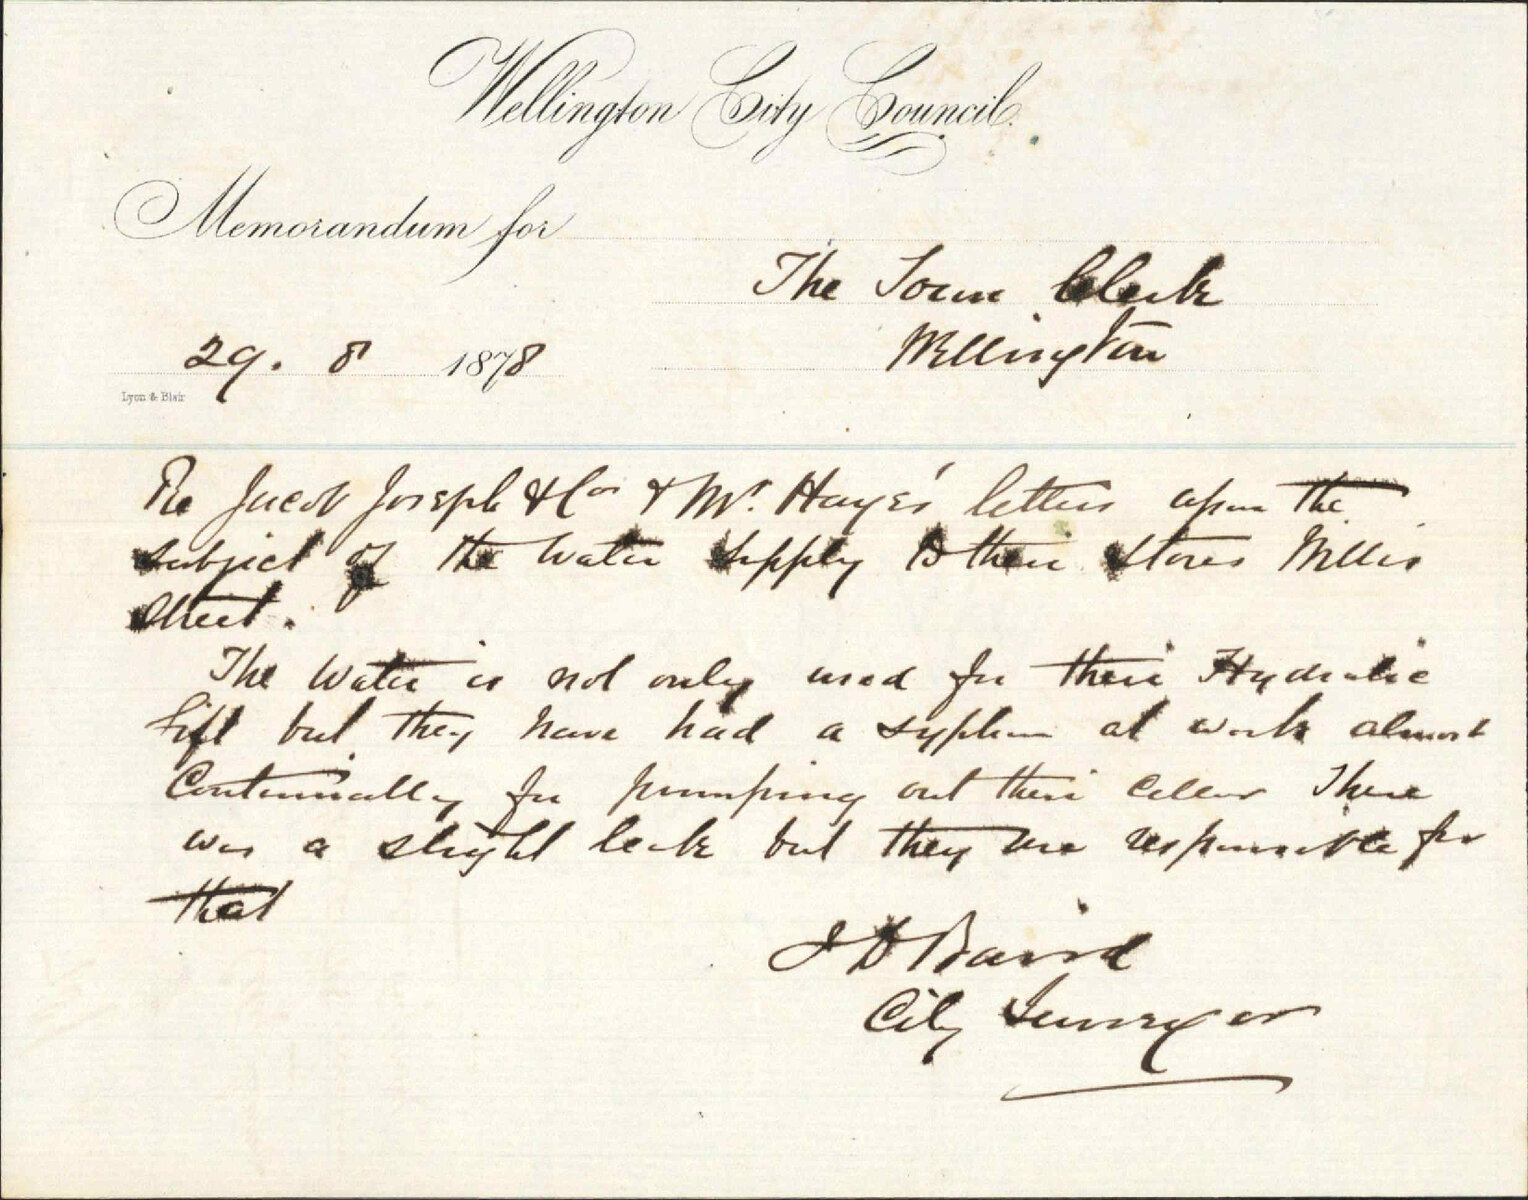 Wellington City Council.
Memorandum for
The Town Clerk
Wellington
29. 8 1878
Lyon & Blair
Re Jacob Joseph & Co & Mr. Hayes' letters upon the
subject of the water supply to their stores Willis
Street.
The water is not only used for their Hydralic
lift but they have had a syphon at work almost
Continually for pumping out their cellar There
was a slight leak but they are responsible for
that
J D Baird
City Surveyor